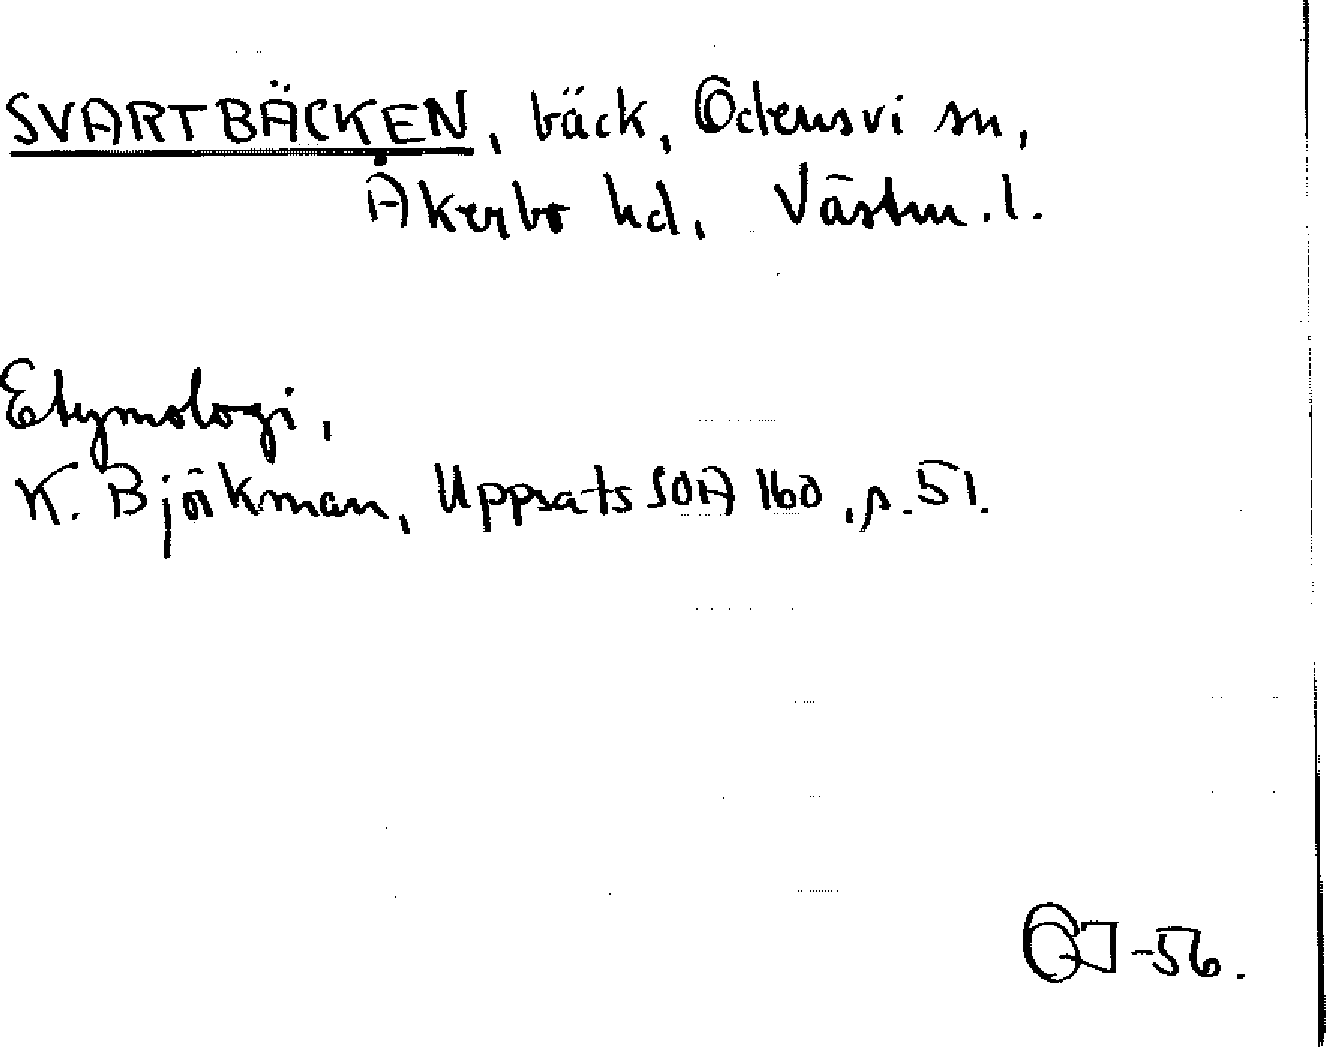 SVARTBÄCKEN, bäck, Odensvi sn,
Åkerbo hd, Västm.l.
Etymologi,
K. Björkman, Uppsats SOA 160, s. 51.
-56.